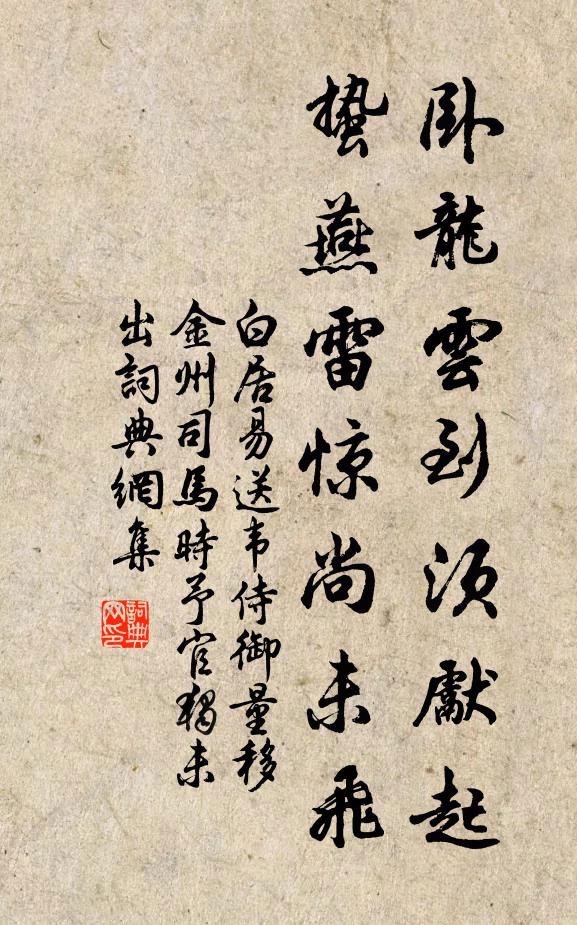 卧龍雲到須獻起
蛰燕雷惊尚未飛
白居易送韦侍御量移
金州司馬時予官獨未
出詞典網集
詞典网印